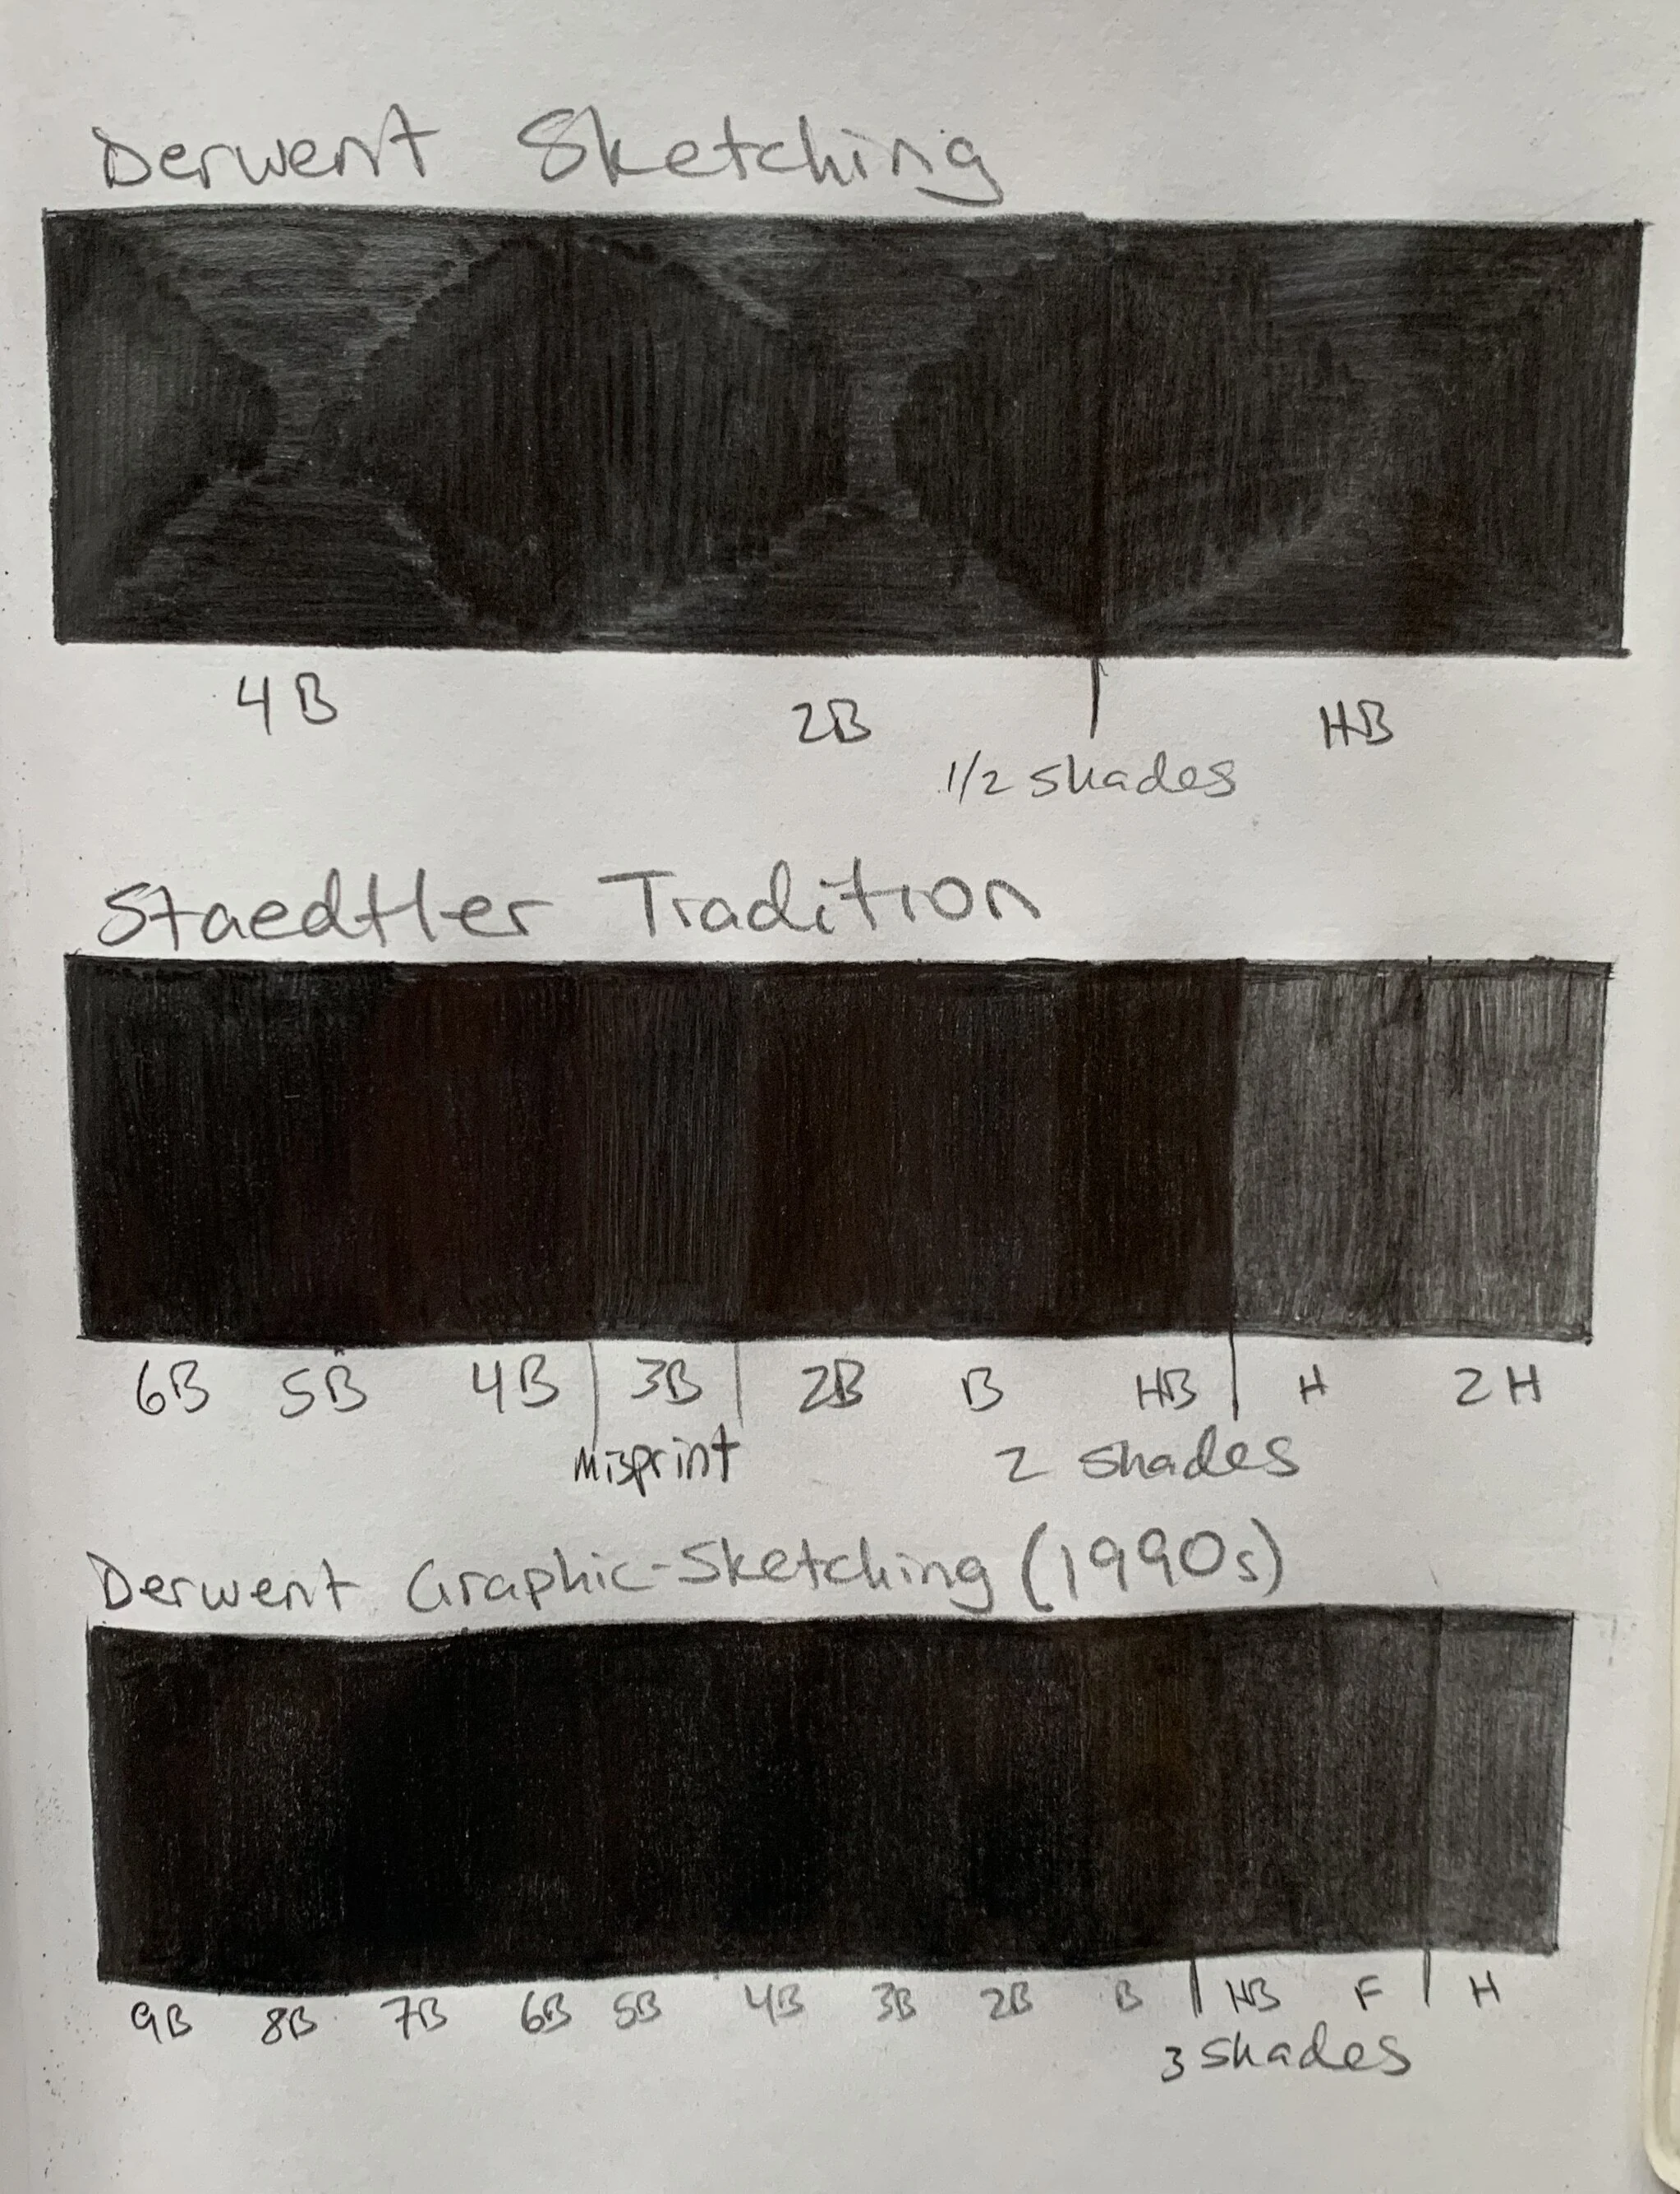 Derwent Sketching
4B 2B HB
1/2 shades
Staedtler Tradition
6B 5B 4B 3B 2B B HB H 2H
Misprint 2 shades
Derwent Graphic-Sketching (1990s)
9B 8B 7B 6B 5B 4B 3B 2B B HB F H
3 shades